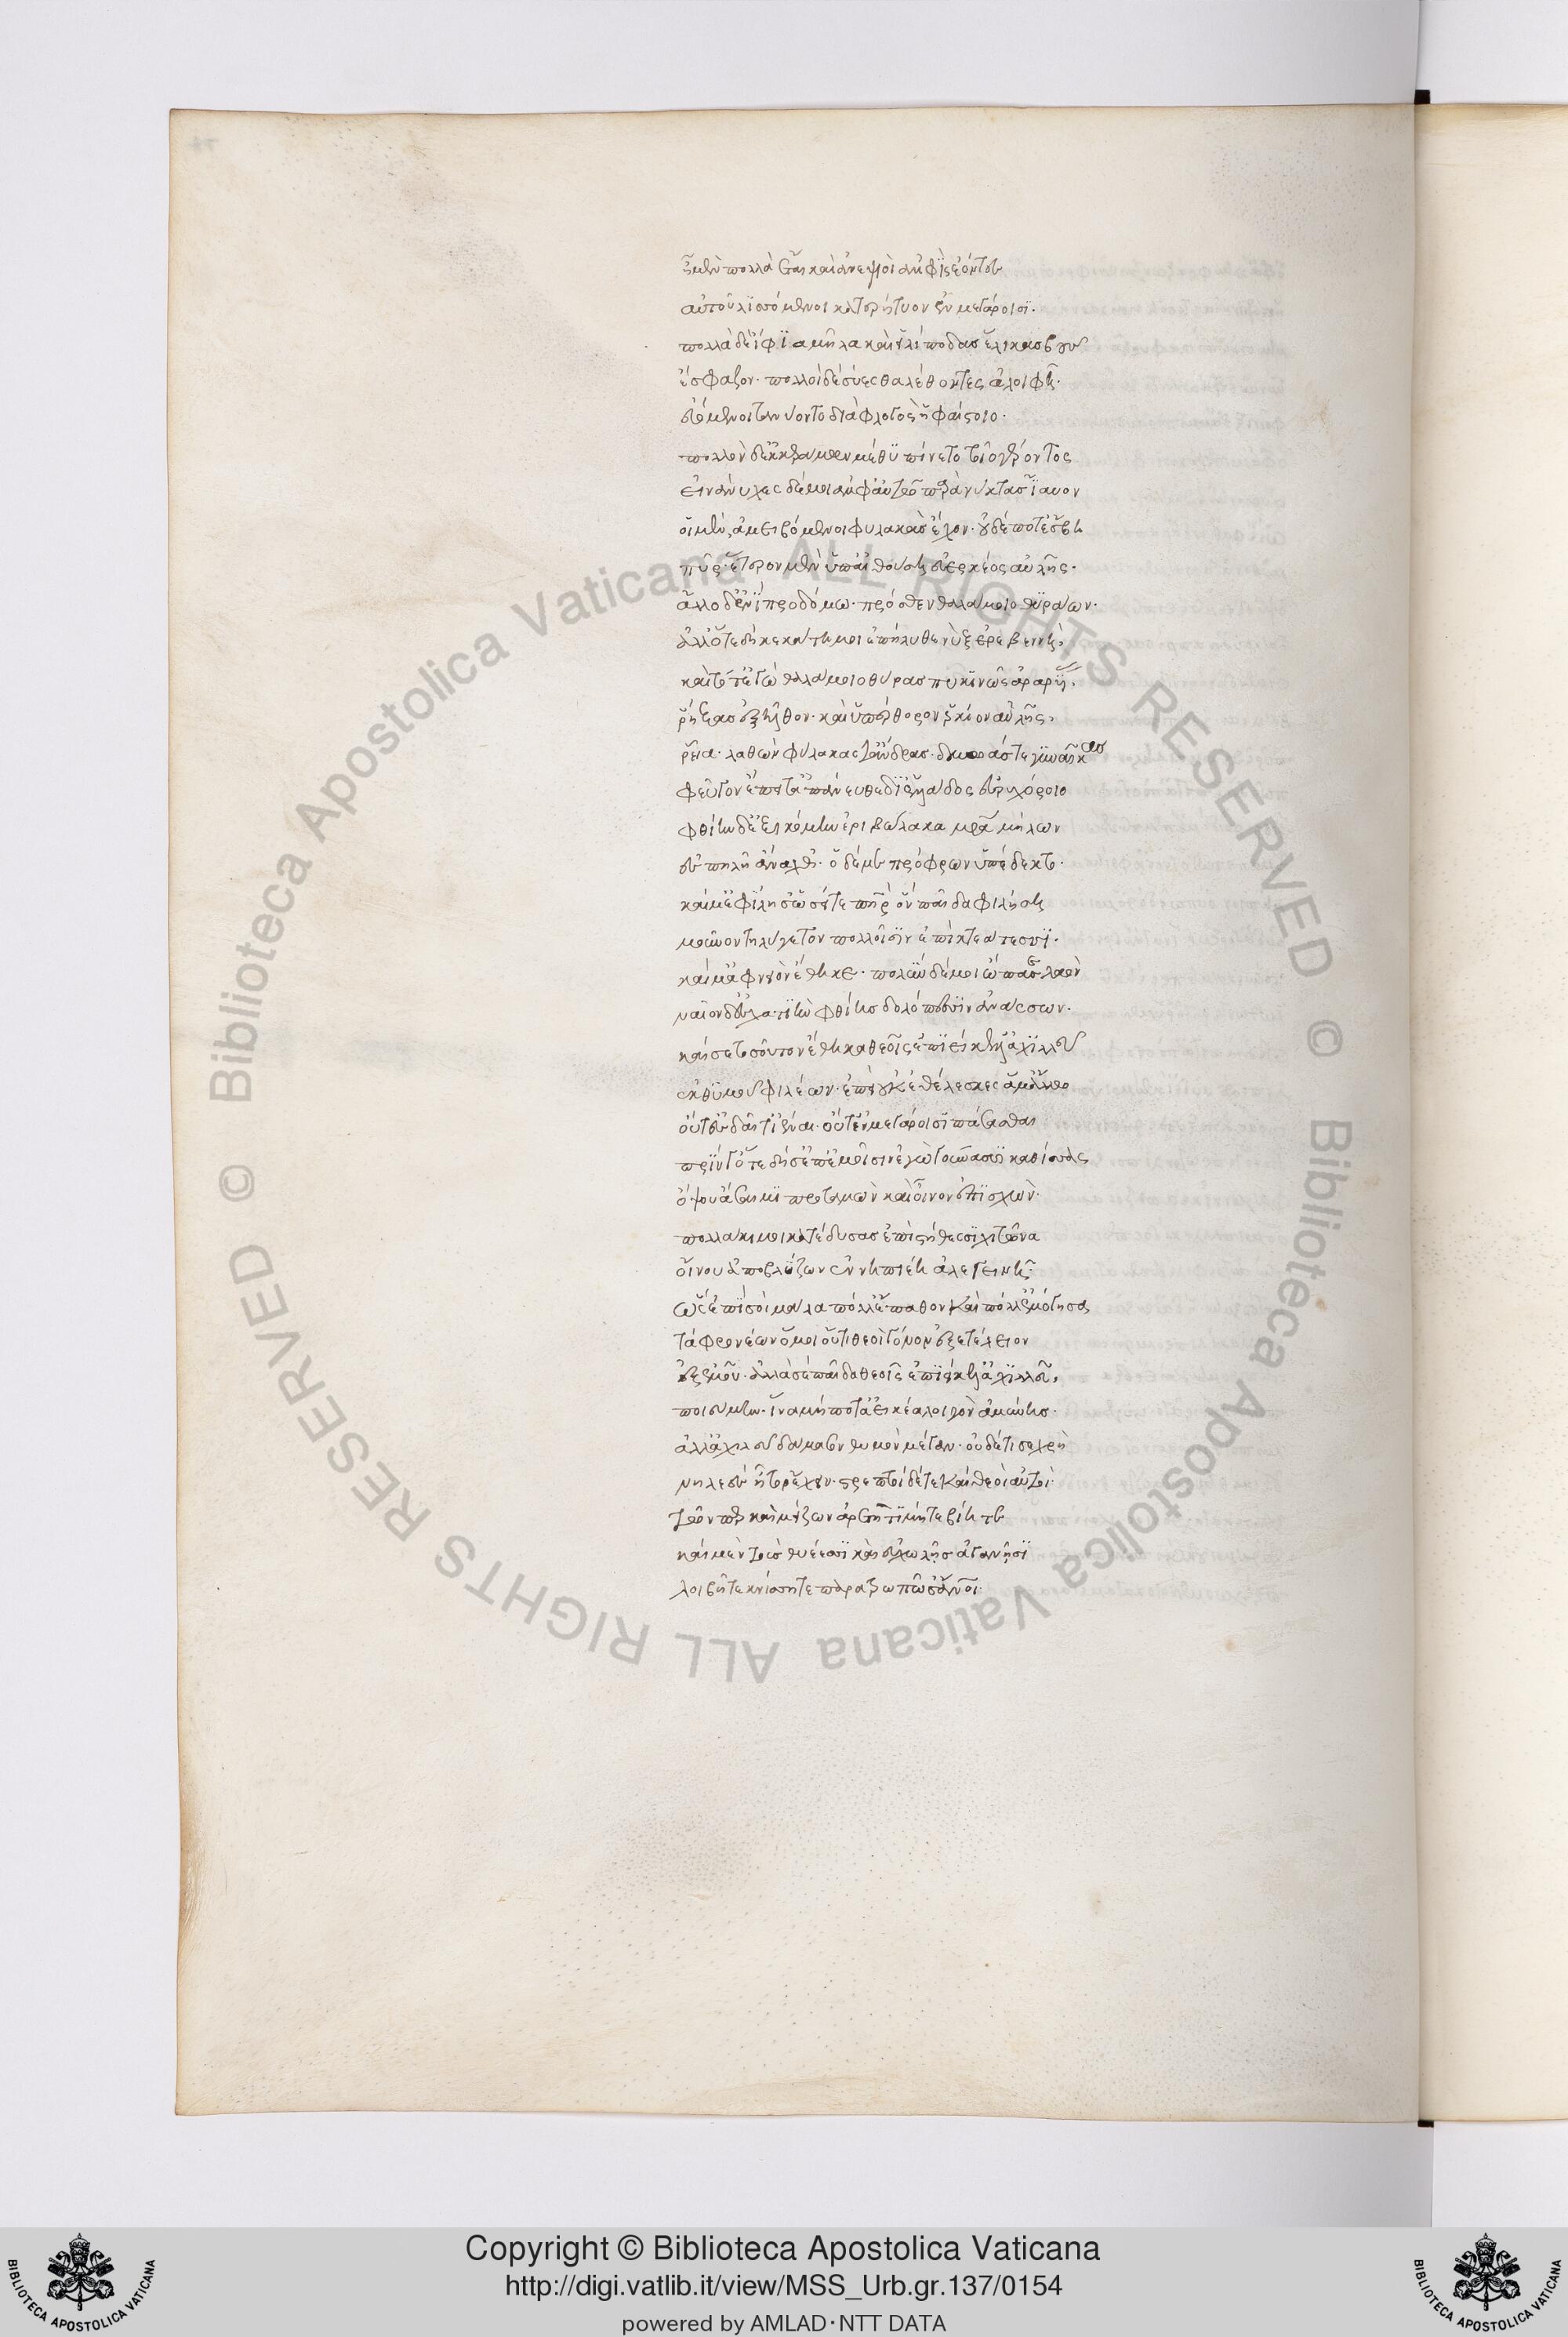 ἦ μὲν πολλὰ ἔται καὶ ἀνεψιοὶ ἀμφὶς ἐόντες
αὐτοῦ λισσόμενοι κατερήτυον ἐν μεγάροισι.
πολλὰ δὲ ἴφια μῆλα καὶ εἰλίποδας ἕλικας βοῦς
ἔσφαζον. πολλοὶ δὲ σύες θαλέθοντες ἀλοιφῇ.
εὑόμενοι τανύοντο διὰ φλογὸς ἡφαίστοιο.
πολλὸν δ' ἐκ κεράμων μέθυ πίνετο τοῖο γέροντος
εἰνάνυχες δέ μοι ἀμφ' αὐτῷ παρὰ νύκτας ἴαυον
οἱ μὲν ἀμειβόμενοι φυλακὰς ἔχον. οὐδέ ποτ' ἔσβη
πῦρ. ἕτερον μὲν ὑπ' αἰθούσῃ εὐερκέος αὐλῆς.
ἄλλο δ' ἐνὶ προδόμω. πρόσθεν θαλάμοιο θυράων.
ἀλλ' ὅτε δὴ δεκάτη μοι ἐπήλυθε νὺξ ἐρεβεννὴ
καὶ τότ' ἐγὼ θαλάμοιο θύρας πυκινῶς ἀραρυίας
ῥήξας ἐξῆλθον. καὶ ὑπέρθορον ἑρκίον αὐλῆς
ῥεῖα. λαθὼν φύλακας τ' ἄνδρας. δμωάς τε γυναῖκας
φεῦγον ἔπειτ' ἀπάνευθε δι' ἑλλάδος εὐρυχόροιο
φθίην δ' ἐξικόμην ἐριβώλακα μητέρα μήλων
ἐς πηλῆ ἄναχθ'. ὁ δέ με πρόφρων ὑπέδεκτο.
καί με φίλησ' ὡς εἴτε πατὴρ ὃν παῖδα φιλήσῃ
μοῦνον τηλύγετον πολλοῖσιν ἐπὶ κτεάτεσσι.
καί μ' ἀφνειὸν ἔθηκε. πολὺν δέ μοι ὤπασε λαὸν
ναῖον δ' ἐσχατιὴν φθίης δολόπεσσιν ἀνάσσων.
καί σε τοσοῦτον ἔθηκα θεοῖς ἐπιείκελ' ἀχιλλεῦ
ἐκ θυμοῦ φιλέων. ἐπεὶ οὐκ ἐθέλεσκες ἅμ' ἄλλῳ
οὔτ' ἐς δαῖτ' ἰέναι. οὔτ' ἐν μεγάροισι πάσασθαι
πρίν γ' ὅτε δή σ' ἐπ' ἐμοῖσιν ἐγὼ γούνασσι καθίσσας
ὄψου ἄσαιμι προταμὼν καὶ οἶνον ἐπισχών.
πολλάκι μοι κατέδυσας ἐπὶ στήθεσσι χιτῶνα
οἴνου ἀποβλύζων ἐν νηπιέη ἀλεγεινῇ.
ὣς ἐπὶ σοὶ μάλα πόλλ' ἔπαθον καὶ πόλλ' ἐμόγησα
τὰ φρονέων ὅ μοι οὔτι θεοὶ γόνον ἐξετέλειον
ἐξ ἐμοῦ. ἀλλὰ σὲ παῖδα θεοῖς ἐπιείκελ' ἀχιλλεῦ,
ποιεύμην. ἵνα μή ποτ' ἀεικέα λοιγὸν ἀμύνῃς.
ἀλλ' ἀχιλεῦ δάμασον θυμὸν μέγαν. οὐδέ τί σε χρὴ
νηλεὲς ἦτορ ἔχειν. στρεπτοὶ δέ τε καὶ θεοὶ αὐτοὶ
τῶν περ καὶ μείζων ἀρετὴ τιμή τε βίη τε
καὶ μὲν τοὺς θυέεσσι καὶ εὐχωλῆς ἀγανῇσι
λοιβῇ τε κνίσῃ τε παρατρωπῶσ' ἄνθρωποι.
Copyright © Biblioteca Apostolica Vaticana
http://digi.vatlib.it/view/MSS_Urb.gr.137/0154
powered by AMLAD·NTT DATA